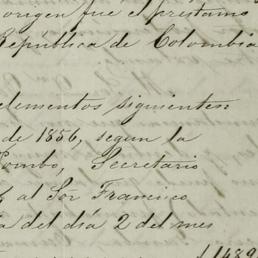 origen fué el préstamo
República de Colombia
elementos siguientes:
de 1856, segun la
Pombo, Secretario
al Sör Francisco
del día 2 del mes